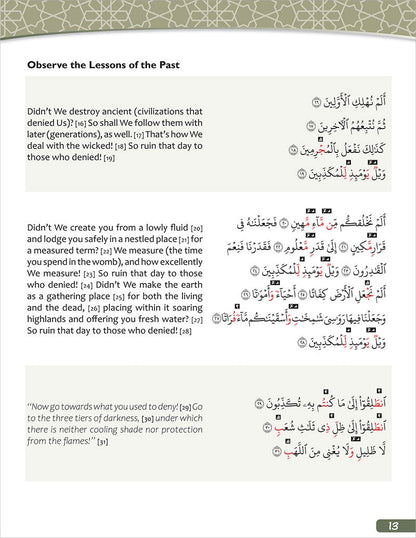 Observe the Lessons of the Past
Didn't We destroy ancient (civilizations that
denied Us)? [16] So shall We follow them with
later (generations), as well. [17] That's how We
deal with the wicked! [18] So ruin that day to
those who denied! [19]
أَلَمْ نُهْلِكِ ٱلْأَوَّلِينَ ١٦
ثُمَّ نُتْبِعُهُمُ ٱلْآخِرِينَ ١٧
كَذَٰلِكَ نَفْعَلُ بِٱلْمُجْرِمِينَ ١٨
وَيْلٌ يَوْمَئِذٍ لِّلْمُكَذِّبِينَ ١٩
Didn't We create you from a lowly fluid [20]
and lodge you safely in a nestled place [21] for
a measured term? [22] We measure (the time
you spend in the womb), and how excellently
We measure! [23] So ruin that day to those
who denied! [24] Didn't We make the earth
as a gathering place [25] for both the living
and the dead, [26] placing within it soaring
highlands and offering you fresh water? [27]
So ruin that day to those who denied! [28]
أَلَمْ نَخْلُقكُّم مِّن مَّآءٍ مَّهِينٍ ٢٠ فَجَعَلْنَٰهُ فِى
قَرَارٍ مَّكِينٍ ٢١ إِلَىٰ قَدَرٍ مَّعْلُومٍ ٢٢ فَقَدَرْنَا فَنِعْمَ
ٱلْقَٰدِرُونَ ٢٣ وَيْلٌ يَوْمَئِذٍ لِّلْمُكَذِّبِينَ ٢٤
أَلَمْ نَجْعَلِ ٱلْأَرْضَ كِفَاتًا ٢٥ أَحْيَآءً وَأَمْوَٰتًا ٢٦
وَجَعَلْنَا فِيهَا رَوَٰسِىَ شَٰمِخَٰتٍ وَأَسْقَيْنَٰكُم مَّآءً فُرَاتًا ٢٧
وَيْلٌ يَوْمَئِذٍ لِّلْمُكَذِّبِينَ ٢٨
"Now go towards what you used to deny! [29] Go
to the three tiers of darkness, [30] under which
there is neither cooling shade nor protection
from the flames!" [31]
ٱنطَلِقُوٓا۟ إِلَىٰ مَا كُنتُم بِهِۦ تُكَذِّبُونَ ٢٩
ٱنطَلِقُوٓا۟ إِلَىٰ ظِلٍّ ذِى ثَلَٰثِ شُعَبٍ ٣٠
لَّا ظَلِيلٍ وَلَا يُغْنِى مِنَ ٱللَّهَبِ ٣١
13